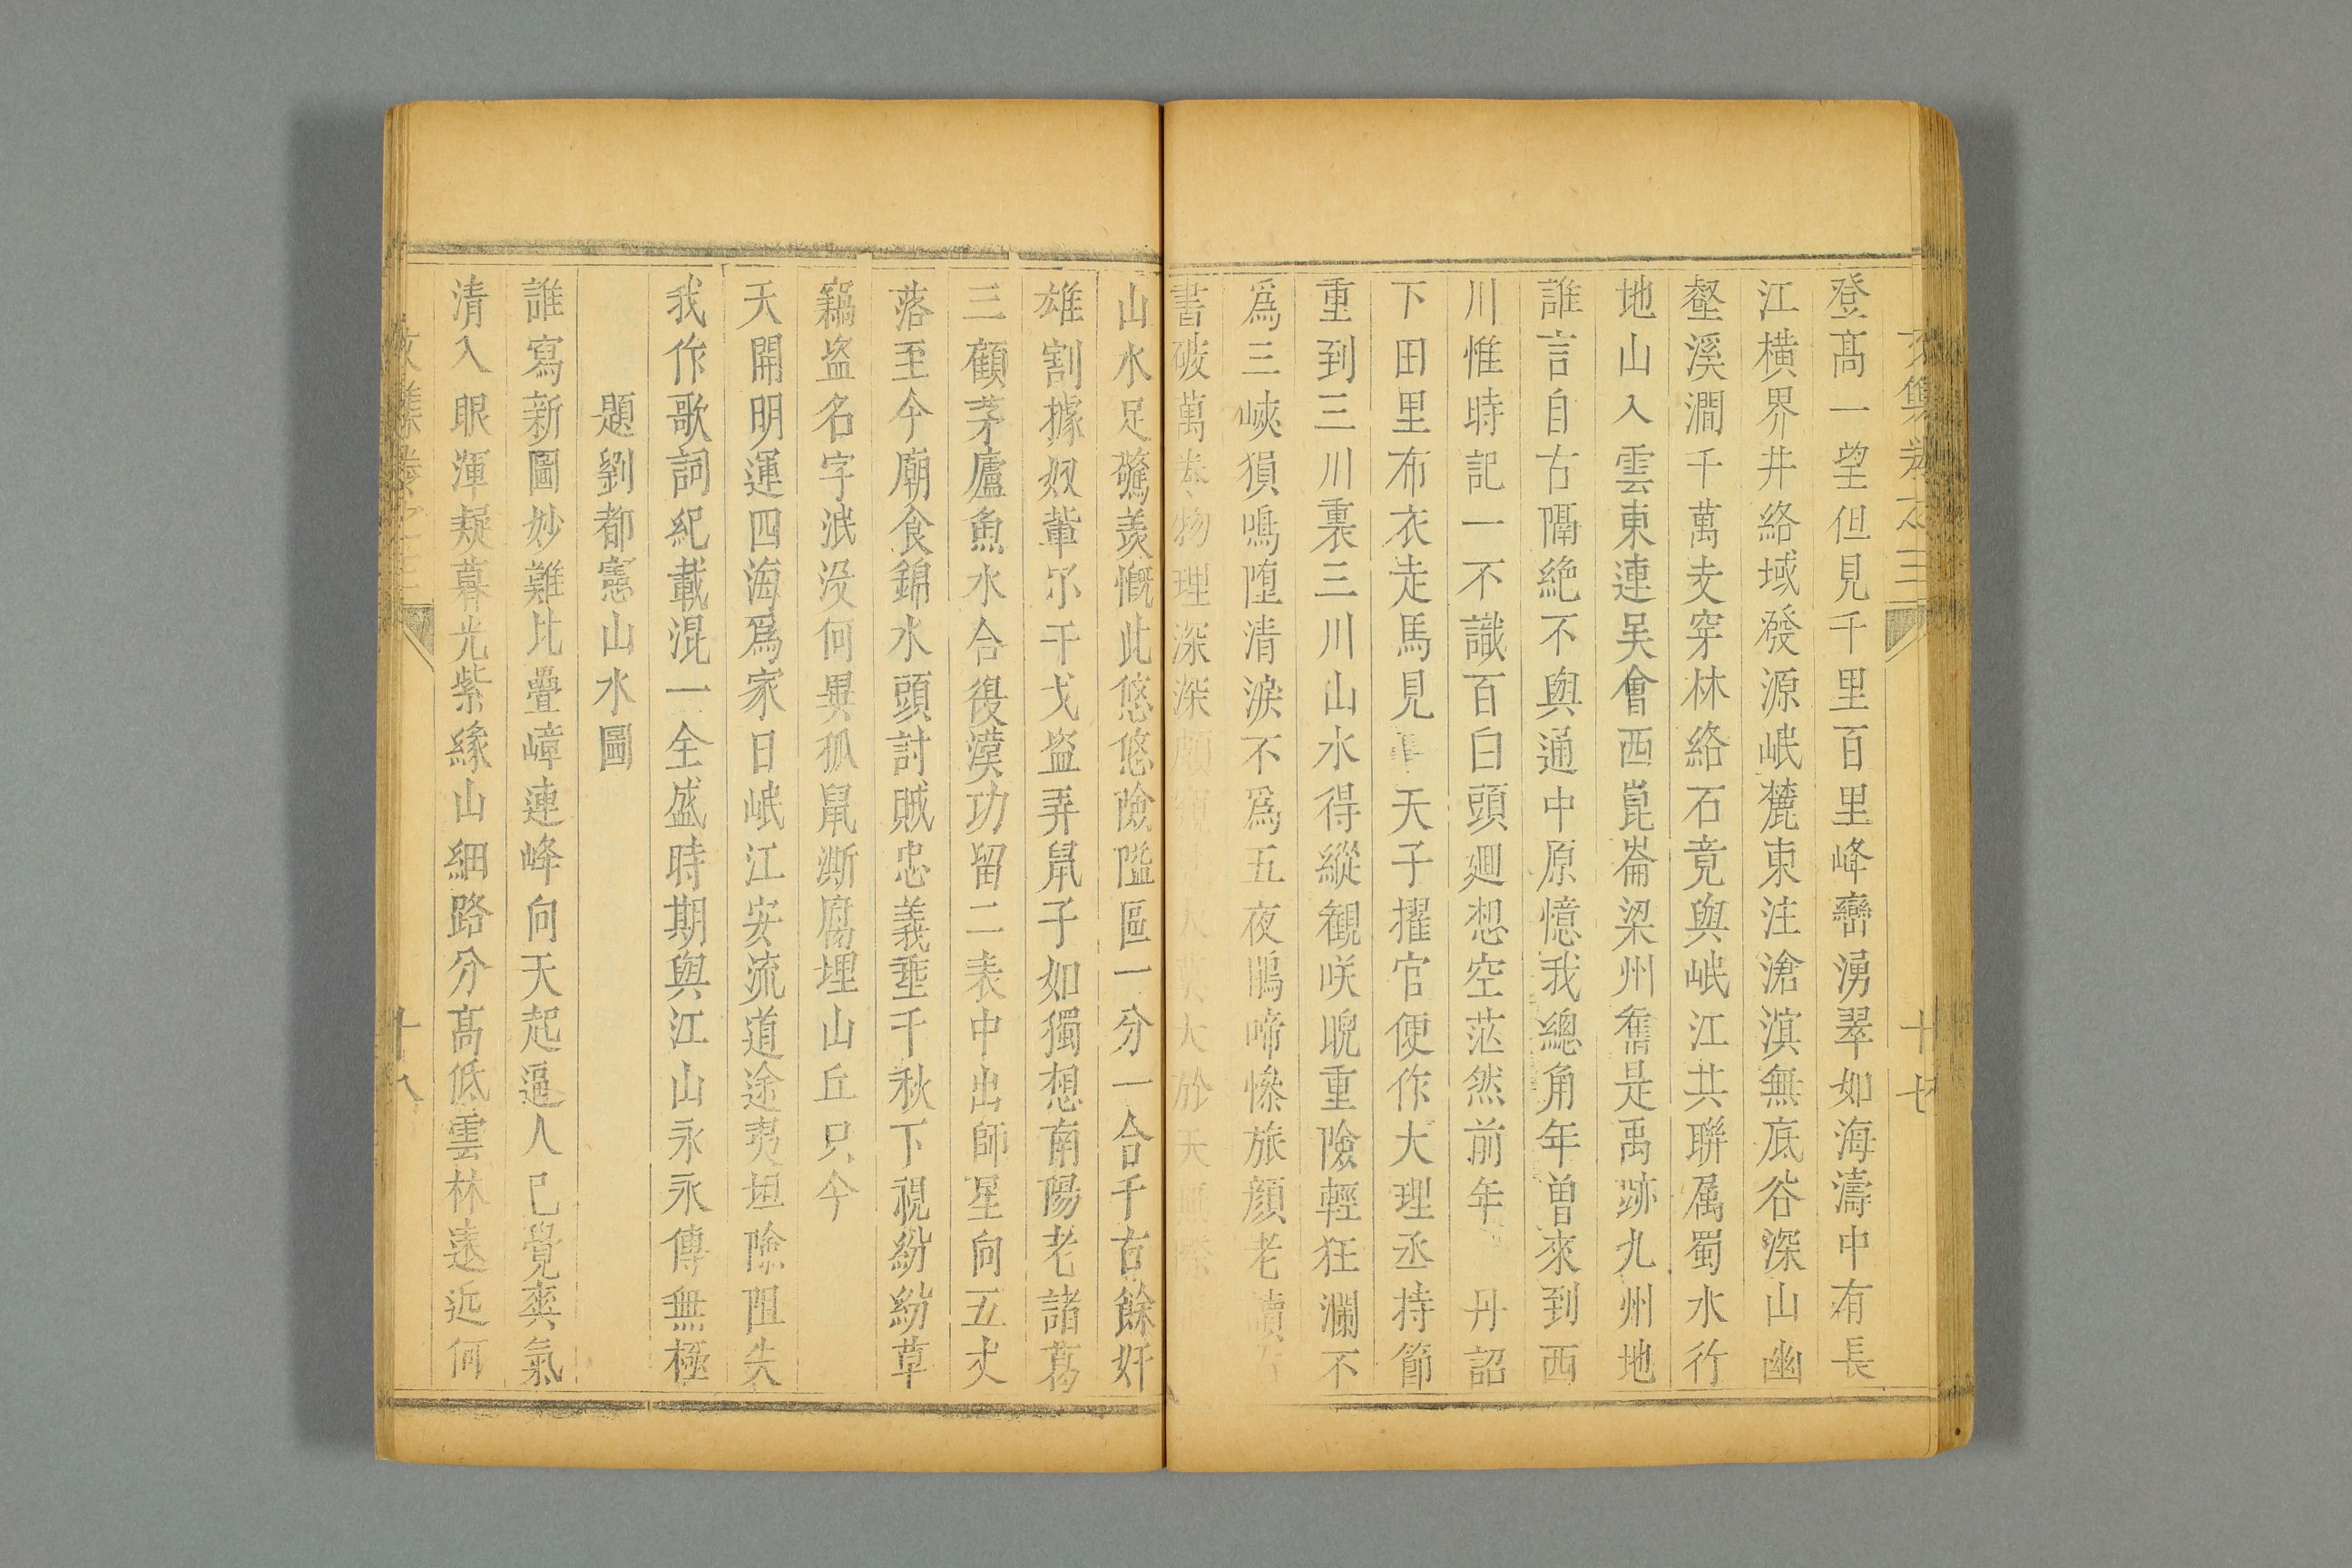 文集卷之三
十七
登高一望但見千里百里峰巒湧翠如海濤中有長
江橫界井絡域發源岷麓東注滄溟無底谷深山幽
壑溪澗千萬支穿林絡石竟與岷江共聯属蜀水行
地山入雲東連吴會西崑崙梁州舊是禹跡九州地
誰言自古隔絶不與通中原憶我總角年曽來到西
川惟時記一不識百白頭廻想空茫然前年丹詔
下田里布衣走馬見天子擢官便作大理丞持節
重到三川裏三川山水得縱觀咲睨重險輕狂瀾不
爲三峽猿鳴墮清淚不爲五夜鵑啼慘旅顔老讀
書破萬卷物理深深大於天
山水足驚羙慨此悠悠險隘區一分一合千古餘奸
雄割據奴輩尔干戈盗弄鼠子如獨想南陽老諸葛
三顧茅廬魚水合復漢功留二表中出師星向五丈
落至今廟食錦水頭討賊忠義垂千秋下視紛紛草
竊盗名字泯没何異狐鼠澌腐埋山丘只今
天開明運四海爲家日岷江安流道途夷坦險阻失
我作歌詞紀載混一全盛時期與江山永永傳無極
題劉都憲山水圖
誰寫新圖妙難比疊嶂連峰向天起逼人已覺爽氣
清入眼渾疑暮光紫緣山細路分高低雲林遠近何
文集卷之三
十八